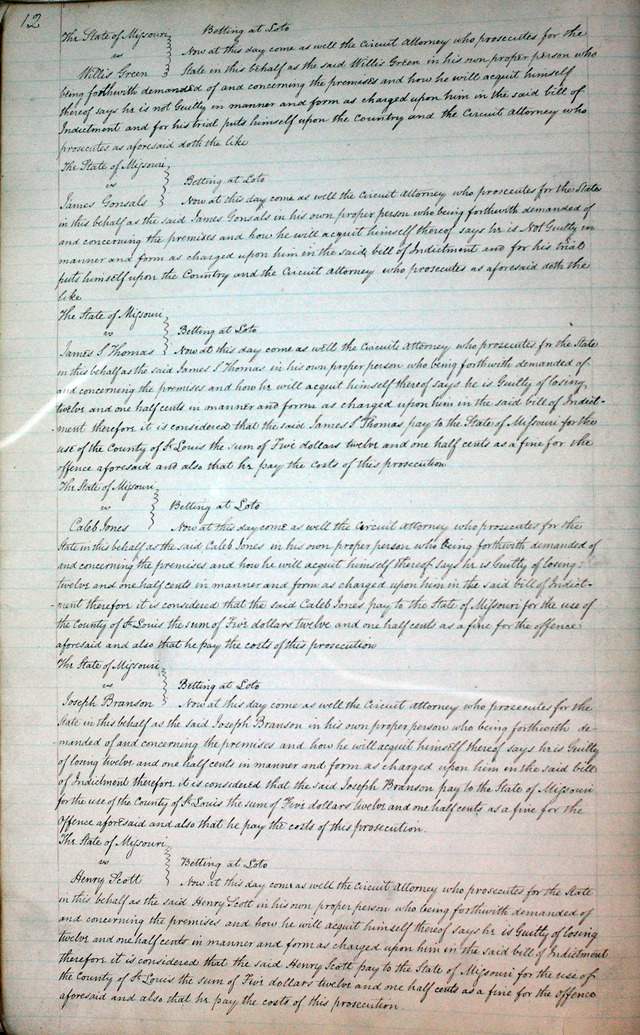 12
The State of Missouri
vs
Willis Green
Betting at Loto
Now at this day come as well the Circuit Attorney who prosecutes for the
State in this behalf as the said Willis Green in his own proper person who
being forthwith demanded of and concerning the premises and how he will acquit himself
thereof says he is not Guilty in manner and form as charged upon him in the said bill of
Indictment and for his trial puts himself upon the Country and the Circuit Attorney who
prosecutes as aforesaid doth the like
The State of Missouri
vs
James Gonsals
Betting at Loto
Now at this day come as well the Circuit Attorney who prosecutes for the State
in this behalf as the said James Gonsals in his own proper person who being forthwith demanded of
and concerning the premises and how he will acquit himself thereof says he is Not Guilty in
manner and form as charged upon him in the said bill of Indictment and for his trial
puts himself upon the Country and the Circuit Attorney who prosecutes as aforesaid doth the
like
The State of Missouri
vs
James S Thomas
Betting at Loto
Now at this day come as well the Circuit Attorney who prosecutes for the State
in this behalf as the said James S Thomas in his own proper person who being forthwith demanded of
and concerning the premises and how he will acquit himself thereof says he is Guilty of losing
twelve and one half cents in manner and form as charged upon him in the said bill of Indict-
ment therefore it is considered that the said James S Thomas pay to the State of Missouri for the
use of the County of St Louis the sum of Five dollars twelve and one half cents as a fine for the
offence aforesaid and also that he pay the costs of this prosecution
The State of Missouri
vs
Caleb Jones
Betting at Loto
Now at this day come as well the Circuit Attorney who prosecutes for the
State in this behalf as the said Caleb Jones in his own proper person who being forthwith demanded of
and concerning the premises and how he will acquit himself thereof says he is Guilty of losing
twelve and one half cents in manner and form as charged upon him in the said bill of Indict-
-ment therefore it is considered that the said Caleb Jones pay to the State of Missouri for the use of
the County of St Louis the sum of Five dollars twelve and one half cents as a fine for the offence
aforesaid and also that he pay the costs of this prosecution
The State of Missouri
vs
Joseph Branson
Betting at Loto
Now at this day come as well the Circuit Attorney who prosecutes for the
State in this behalf as the said Joseph Branson in his own proper person who being forthwith de-
-manded of and concerning the premises and how he will acquit himself thereof says he is Guilty
of losing twelve and one half cents in manner and form as charged upon him in the said bill
of Indictment therefore it is considered that the said Joseph Branson pay to the State of Missouri
for the use of the County of St Louis the sum of Five dollars twelve and one half cents as a fine for the
Offence aforesaid and also that he pay the costs of this prosecution.
The State of Missouri
vs
Henry Scott
Betting at Loto
Now at this day come as well the Circuit Attorney who prosecutes for the State
in this behalf as the said Henry Scott in his own proper person who being forthwith demanded of
and concerning the premises and how he will acquit himself thereof says he is Guilty of losing
twelve and one half cents in manner and form as charged upon him in the said bill of Indictment
therefore it is considered that the said Henry Scott pay to the State of Missouri for the use of
the County of St Louis the sum of Five dollars twelve and one half cents as a fine for the Offence
aforesaid and also that he pay the costs of this prosecution.